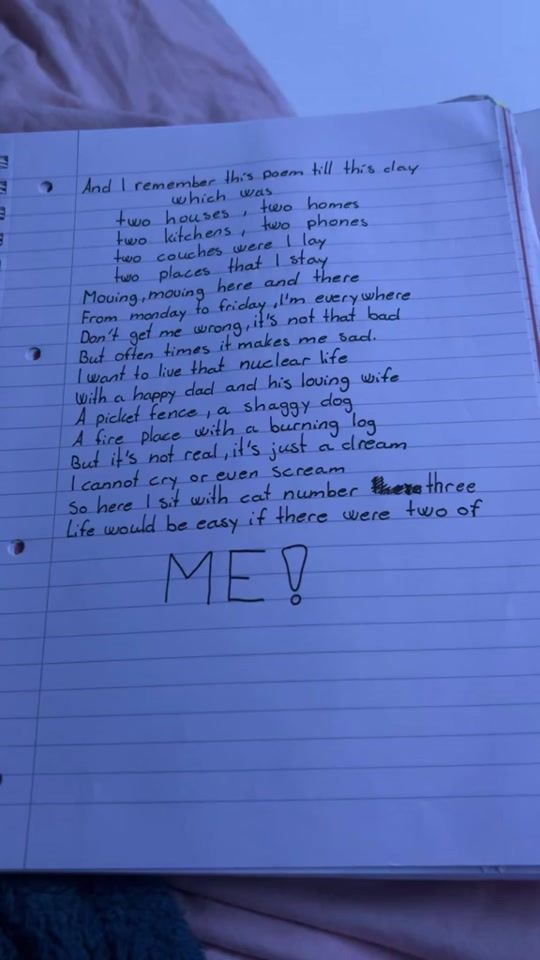 And I remember this poem till this day
which was
two houses, two homes
two kitchens, two phones
two couches were I lay
two places that I stay
Moving, moving here and there
From monday to friday, I'm everywhere
Don't get me wrong, it's not that bad
But often times it makes me sad.
I want to live that nuclear life
With a happy dad and his loving wife
A picket fence, a shaggy dog
A fire place with a burning log
But it's not real, it's just a dream
I cannot cry or even scream
So here I sit with cat number three
Life would be easy if there were two of
ME!